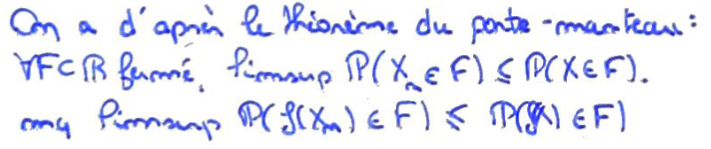 On a d'après le théorème du porte-manteau :
∀F⊂ℝ fermé, limsup ℙ(X_n ∈ F) ≤ ℙ(X ∈ F).
mq limsup ℙ(f(X_n) ∈ F) ≤ ℙ(f(X) ∈ F)